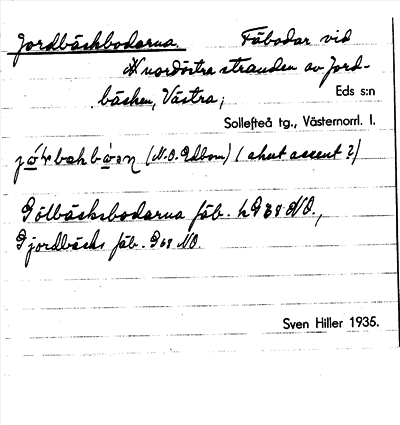 Jordbäckbodarna. Fäbodar vid
nordöstra stranden av Jord-
bäcken, Västra; Eds s:n
Sollefteå tg., Västernorrl. l.
(N.O. Edbom) (akut accent?)
Gölbäcksbodarna fäb.
Gjordbäcks fäb.
Sven Hiller 1935.